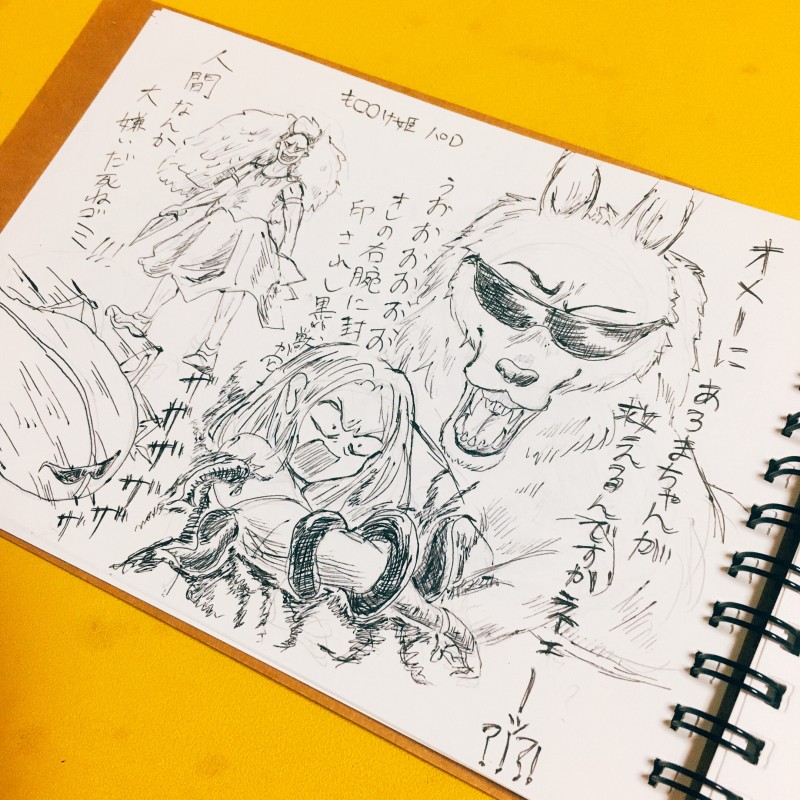 も〇〇け姫パロ
オメーに
あろまちゃんが
救えるんですか
ネェーッ?!?!
うおおおおおお
きの右腕に封
印されし
黒い獣がぁ
人間なんか
大嫌いだ死ねゴミ
ザザザザ
ザザザザ